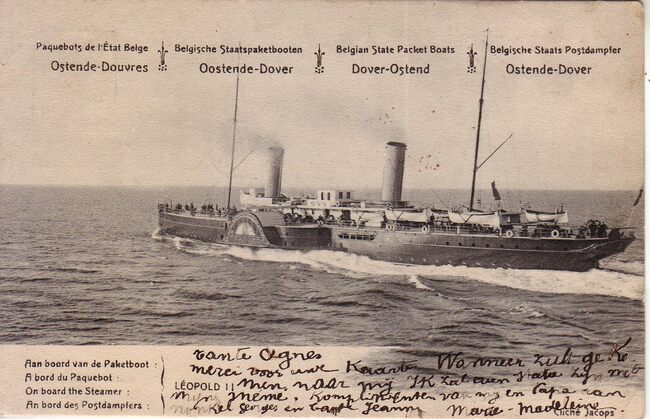 Paquebots de l'État Belge
Ostende-Douvres
Belgische Staatspaketbooten
Oostende-Dover
Belgian State Packet Boats
Dover-Ostend
Belgische Staats Postdampfer
Ostende-Dover
Aan boord van de Paketboot :
A bord du Paquebot :
On board the Steamer :
An bord des Postdampfers :
LÉOPOLD II
tante Agnes
merci voor uwe Kaarten Wanneer zult ge
naar mij Ik zal aan statie zijn met
mijn meme. Komplimenten van mij en Papa aan
nonkel Georges en tante Jeanne
Marie Madeleine
Cliché Jacops